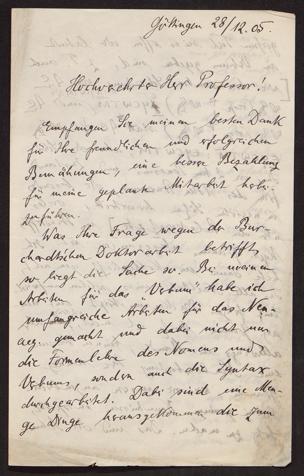 Göttingen 28/12.05.
Hochverehrter Herr Professor!
Empfangen Sie meinen besten Dank
für Ihre freundlichen und erfolgreichen
Bemühungen, eine bessere Bezahlung
für meine geplante Mitarbeit herbei-
zuführen.
Was Ihre Frage wegen der Bur-
chardtschen Doktorarbeit betrifft,
so liegt die Sache so. Bei meinen
Arbeiten für das "Verbum" habe ich
umfangreiche Arbeiten für das Neu-
aeg. gemacht und dabei nicht nur
die Formenlehre des Nomens und
Verbums, sondern auch die Syntax
durchgearbeitet. Dabei sind eine Men-
ge Dinge herausgekommen die zum